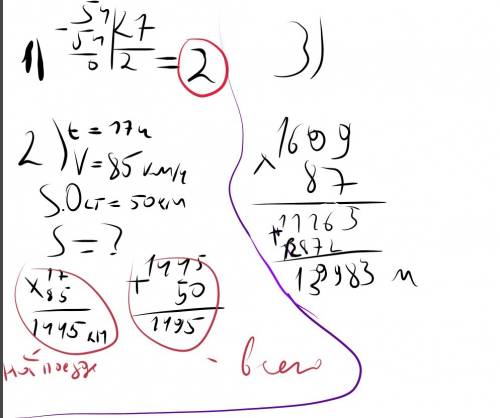 1) - 54 | 27
54 | 2
0
= 2
2) t = 17ч
V = 85 км/ч
S.Ост = 50км
S = ?
× 17
85
1445 км
на поезде
+ 1445
50
1495
- всего
3)
× 1609
87
+ 11263
12872
139983 м